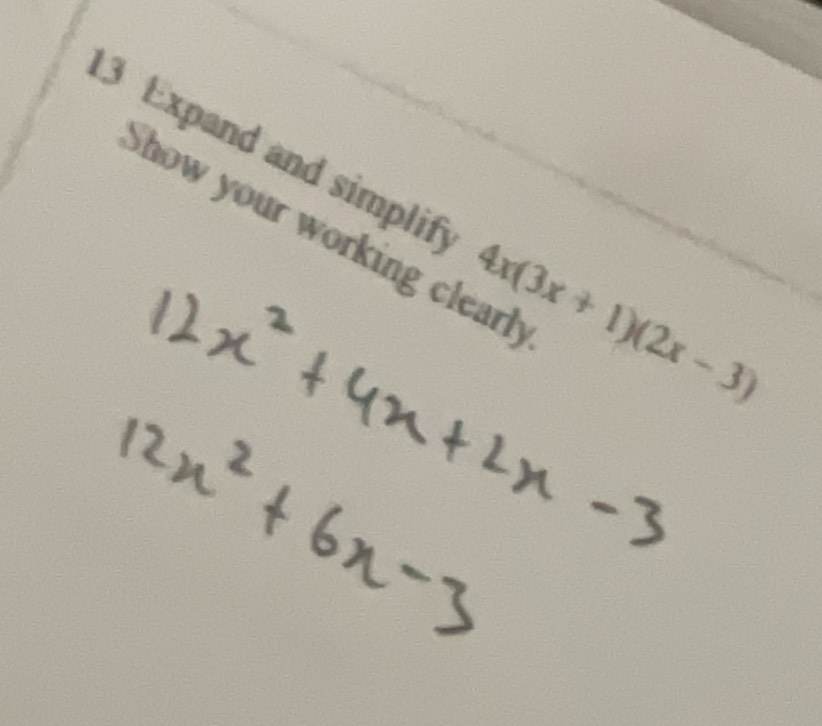 13 Expand and simplify 4x(3x + 1)(2x - 3)
Show your working clearly.
12x² + 4x + 2x - 3
12x² + 6x - 3